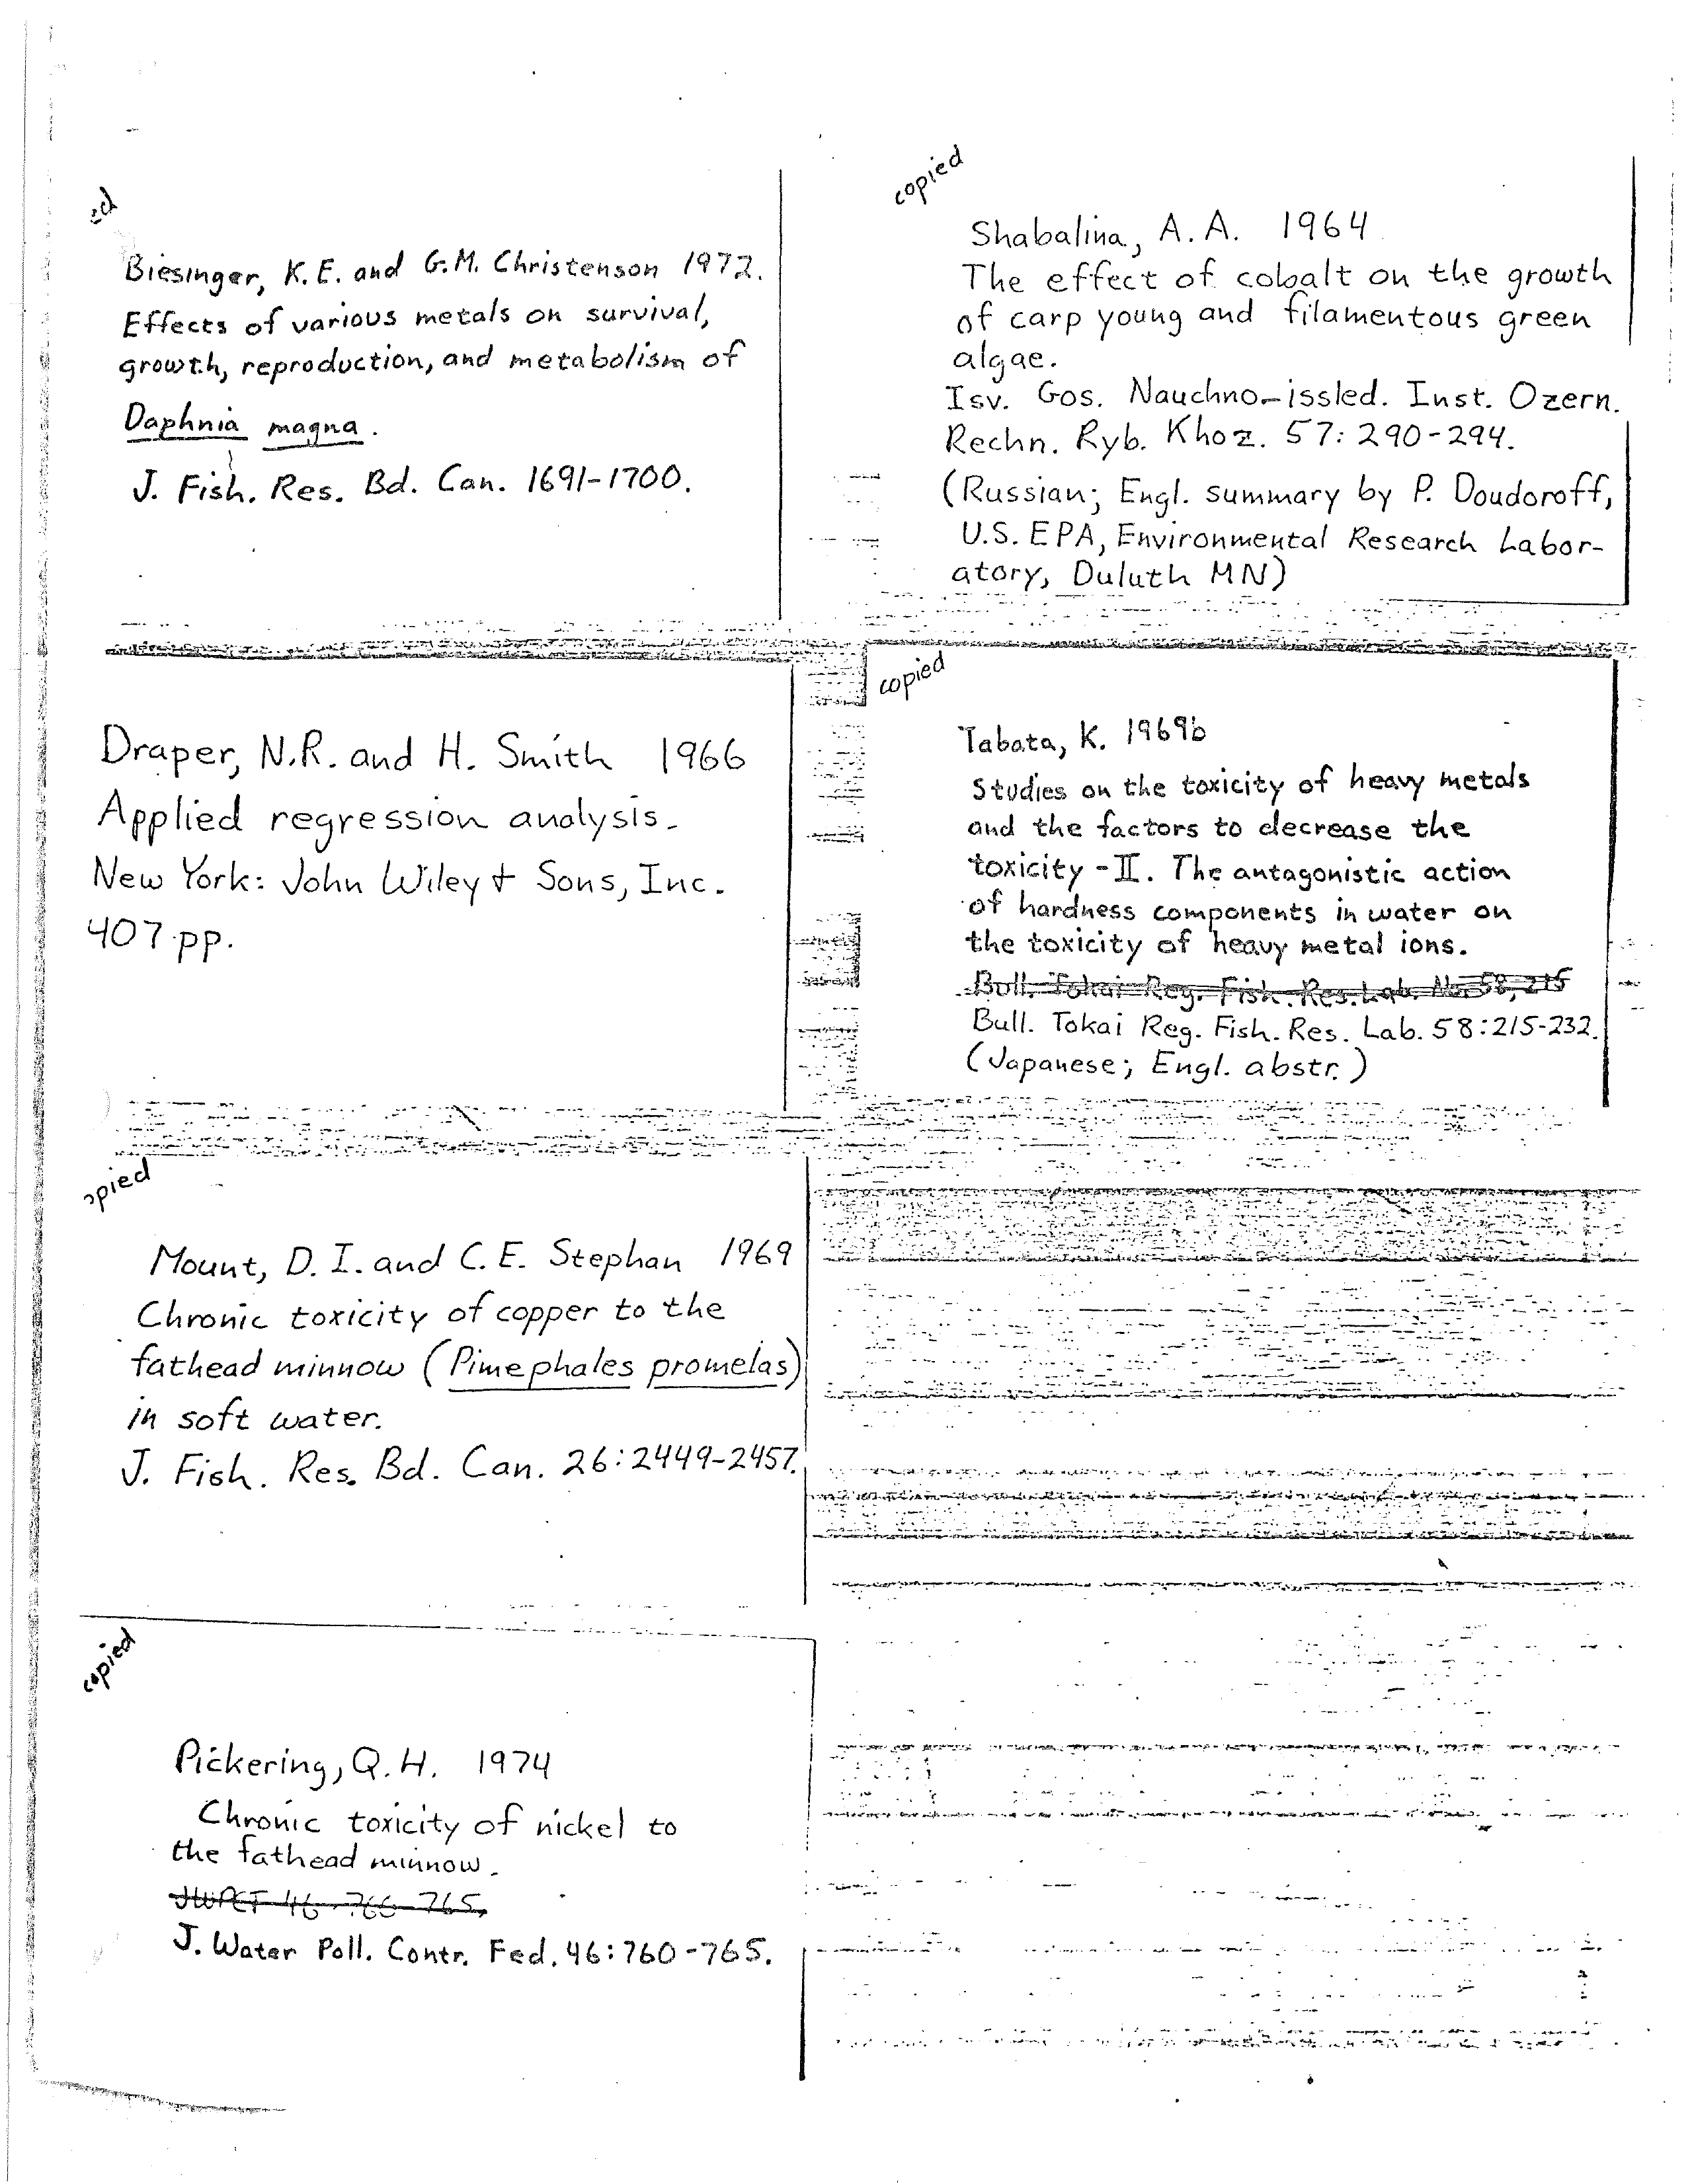 Biesinger, K.E. and G.M. Christenson 1972.
Effects of various metals on survival,
growth, reproduction, and metabolism of
Daphnia magna.
J. Fish. Res. Bd. Can. 1691-1700.
copied
Shabalina, A.A. 1964
The effect of cobalt on the growth
of carp young and filamentous green
algae.
Isv. Gos. Nauchno-issled. Inst. Ozern.
Rechn. Ryb. Khoz. 57: 290-294.
(Russian; Engl. summary by P. Doudoroff,
U.S. EPA, Environmental Research Labor-
atory, Duluth MN)
Draper, N.R. and H. Smith 1966
Applied regression analysis.
New York: John Wiley + Sons, Inc.
407 pp.
copied
Tabata, K. 1969b
Studies on the toxicity of heavy metals
and the factors to decrease the
toxicity - II. The antagonistic action
of hardness components in water on
the toxicity of heavy metal ions.
Bull. Tokai Reg. Fish. Res. Lab. No. 58, 215
Bull. Tokai Reg. Fish. Res. Lab. 58:215-232.
(Japanese; Engl. abstr.)
opied
Mount, D.I. and C.E. Stephan 1969
Chronic toxicity of copper to the
fathead minnow (Pimephales promelas)
in soft water.
J. Fish. Res. Bd. Can. 26:2449-2457.
copied
Pickering, Q.H. 1974
Chronic toxicity of nickel to
the fathead minnow.
46 765.
J. Water Poll. Contr. Fed. 46:760-765.